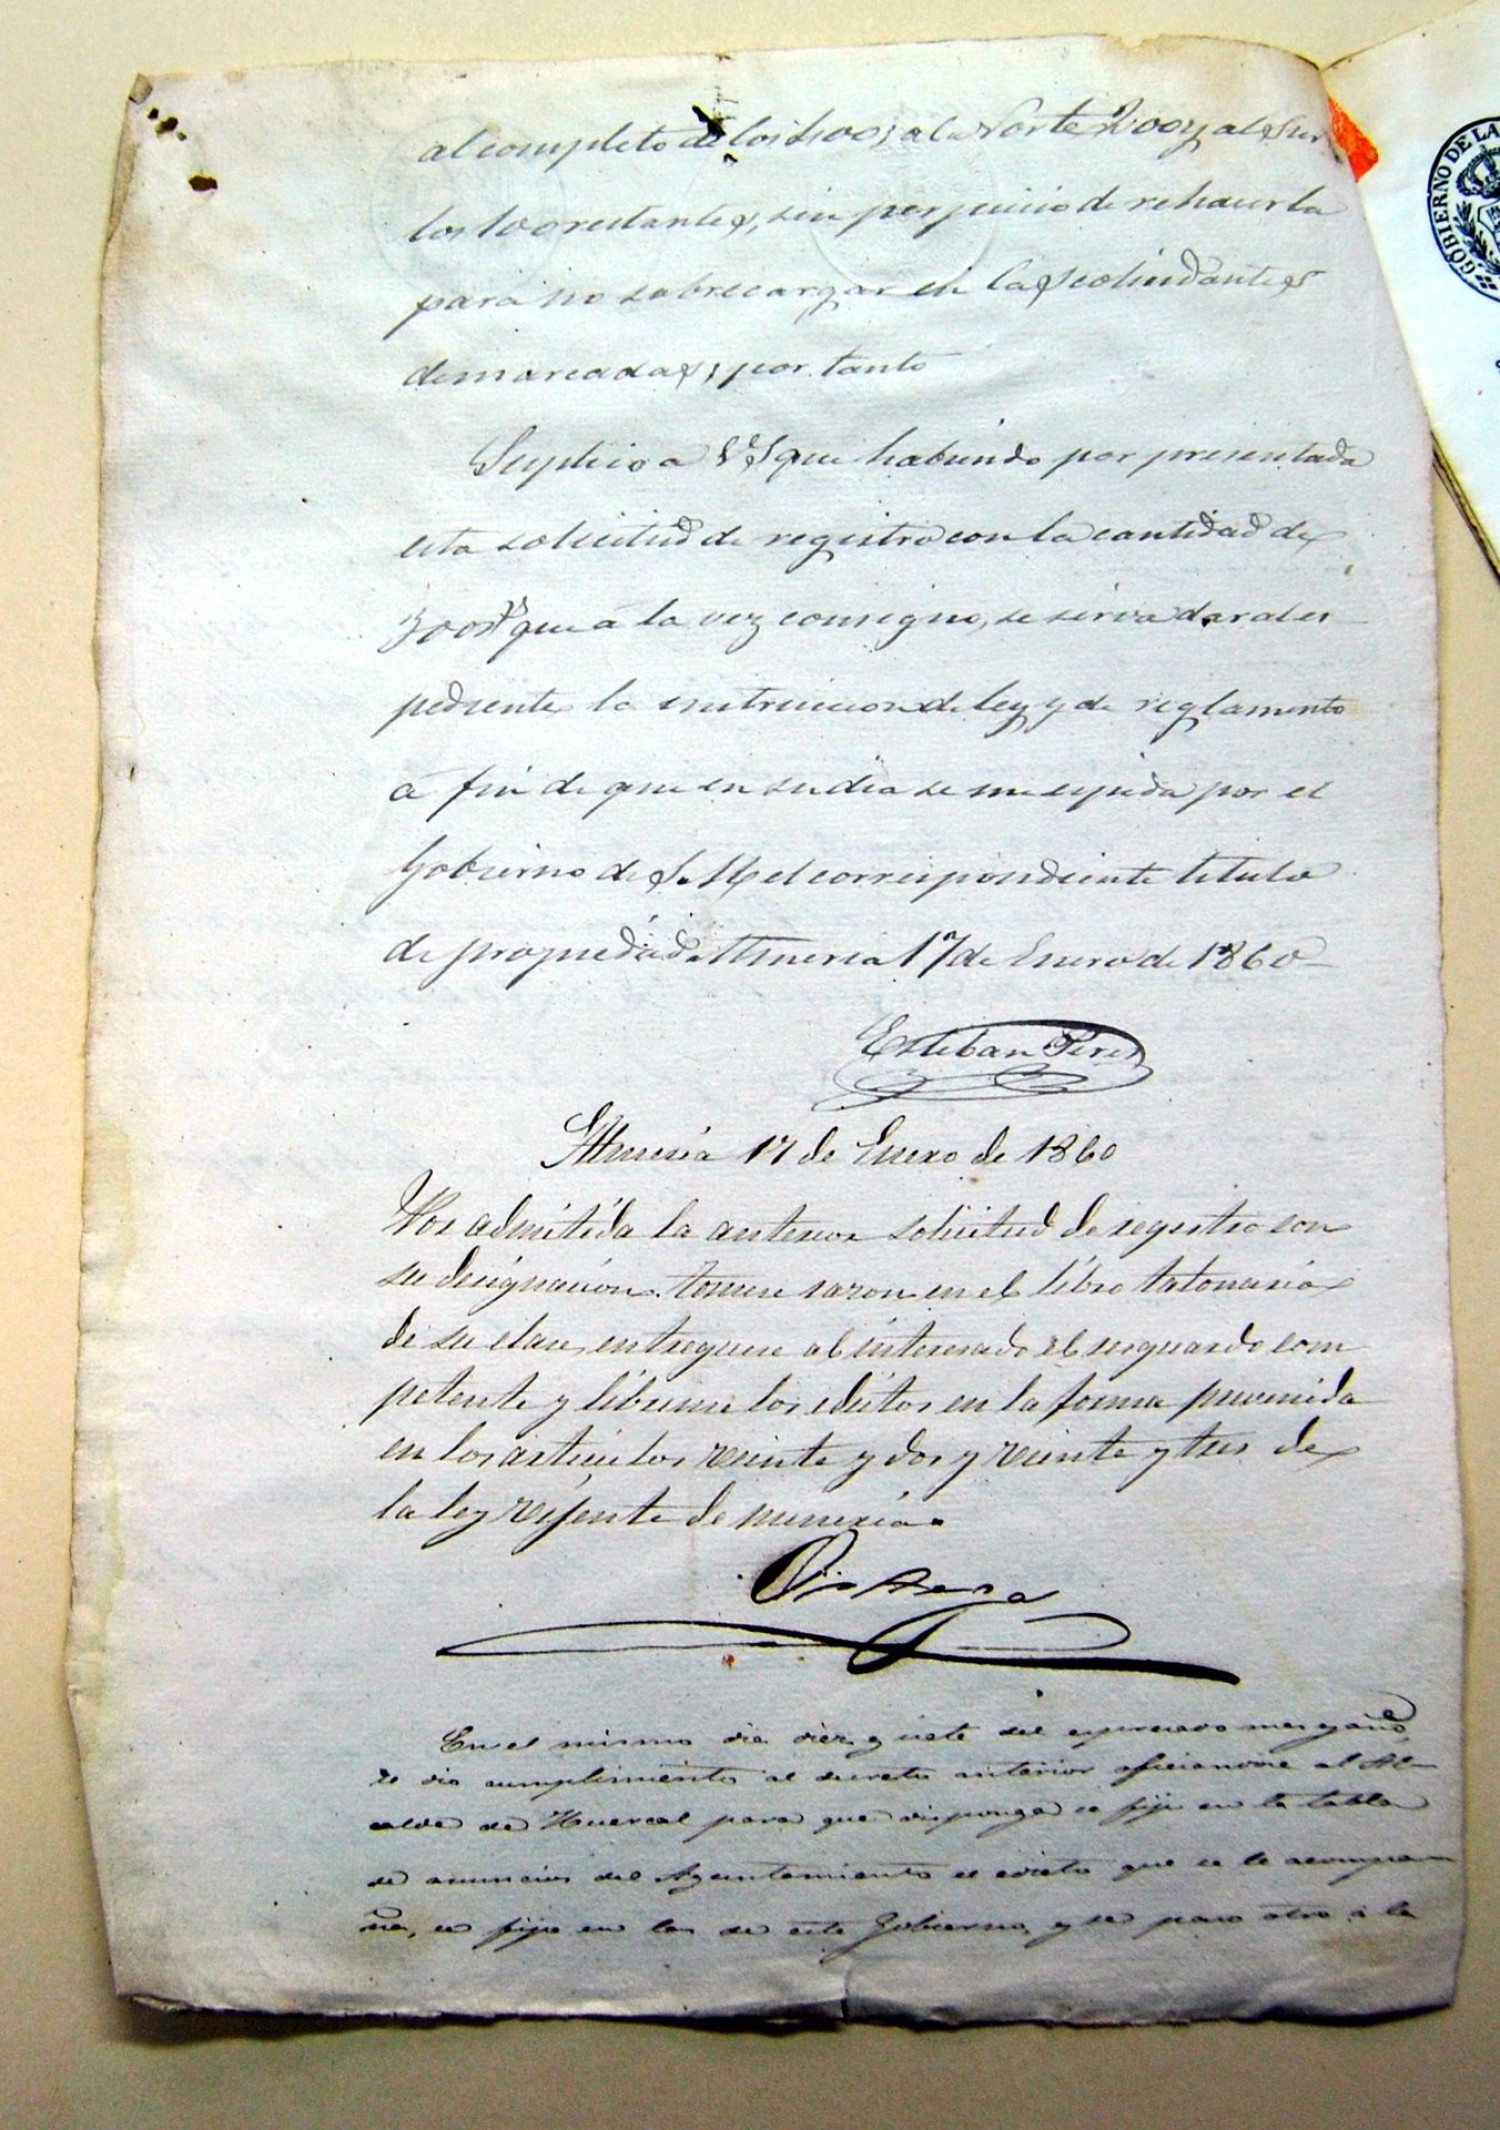 al completo de los 400; al Norte 200 y al Sur
los 100 restantes, sin perjuicio de rehacerla
para no sobrecargar en las colindantes
demarcadas; por tanto
Suplico a V.S. que habiendo por presentada
esta solicitud de registro con la cantidad de
300 rs que a la vez consigno, se sirva dar al es
pediente la instruccion de ley y de reglamento
a fin de que en su dia se me espida por el
Gobierno de S.M. el correspondiente titulo
de propiedad. Almeria 17 de Enero de 1860
Esteban Perez
Almería 17 de Enero de 1860
Por admitida la anterior solicitud de registro con
su designacion. tomese razon en el libro talonario
de su clase, entreguese al interesado el resguardo com
petente y librense los edictos en la forma prevenida
en los articulos veinte y dos y veinte y tres de
la ley vijente de mineria.
En el mismo dia diez y siete del espresado mes y año,
se dio cumplimiento al decreto anterior oficiandose al Al-
calde de Huercal para que disponga se fije en la tabla
de anuncios del Ayuntamiento el edicto que se le acompa
ña, se fijo en las de este Gobierno, y se paso otro á la
GOBIERNO DE LA